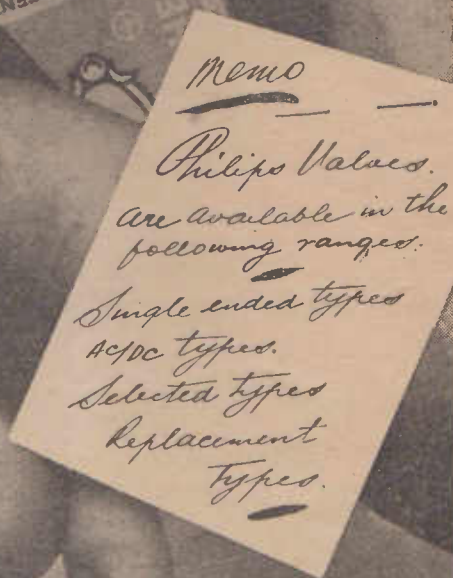 Memo
Philips Valves.
are available in the
following ranges:
Single ended types
AC/DC types.
Selected types
Replacement
Types.